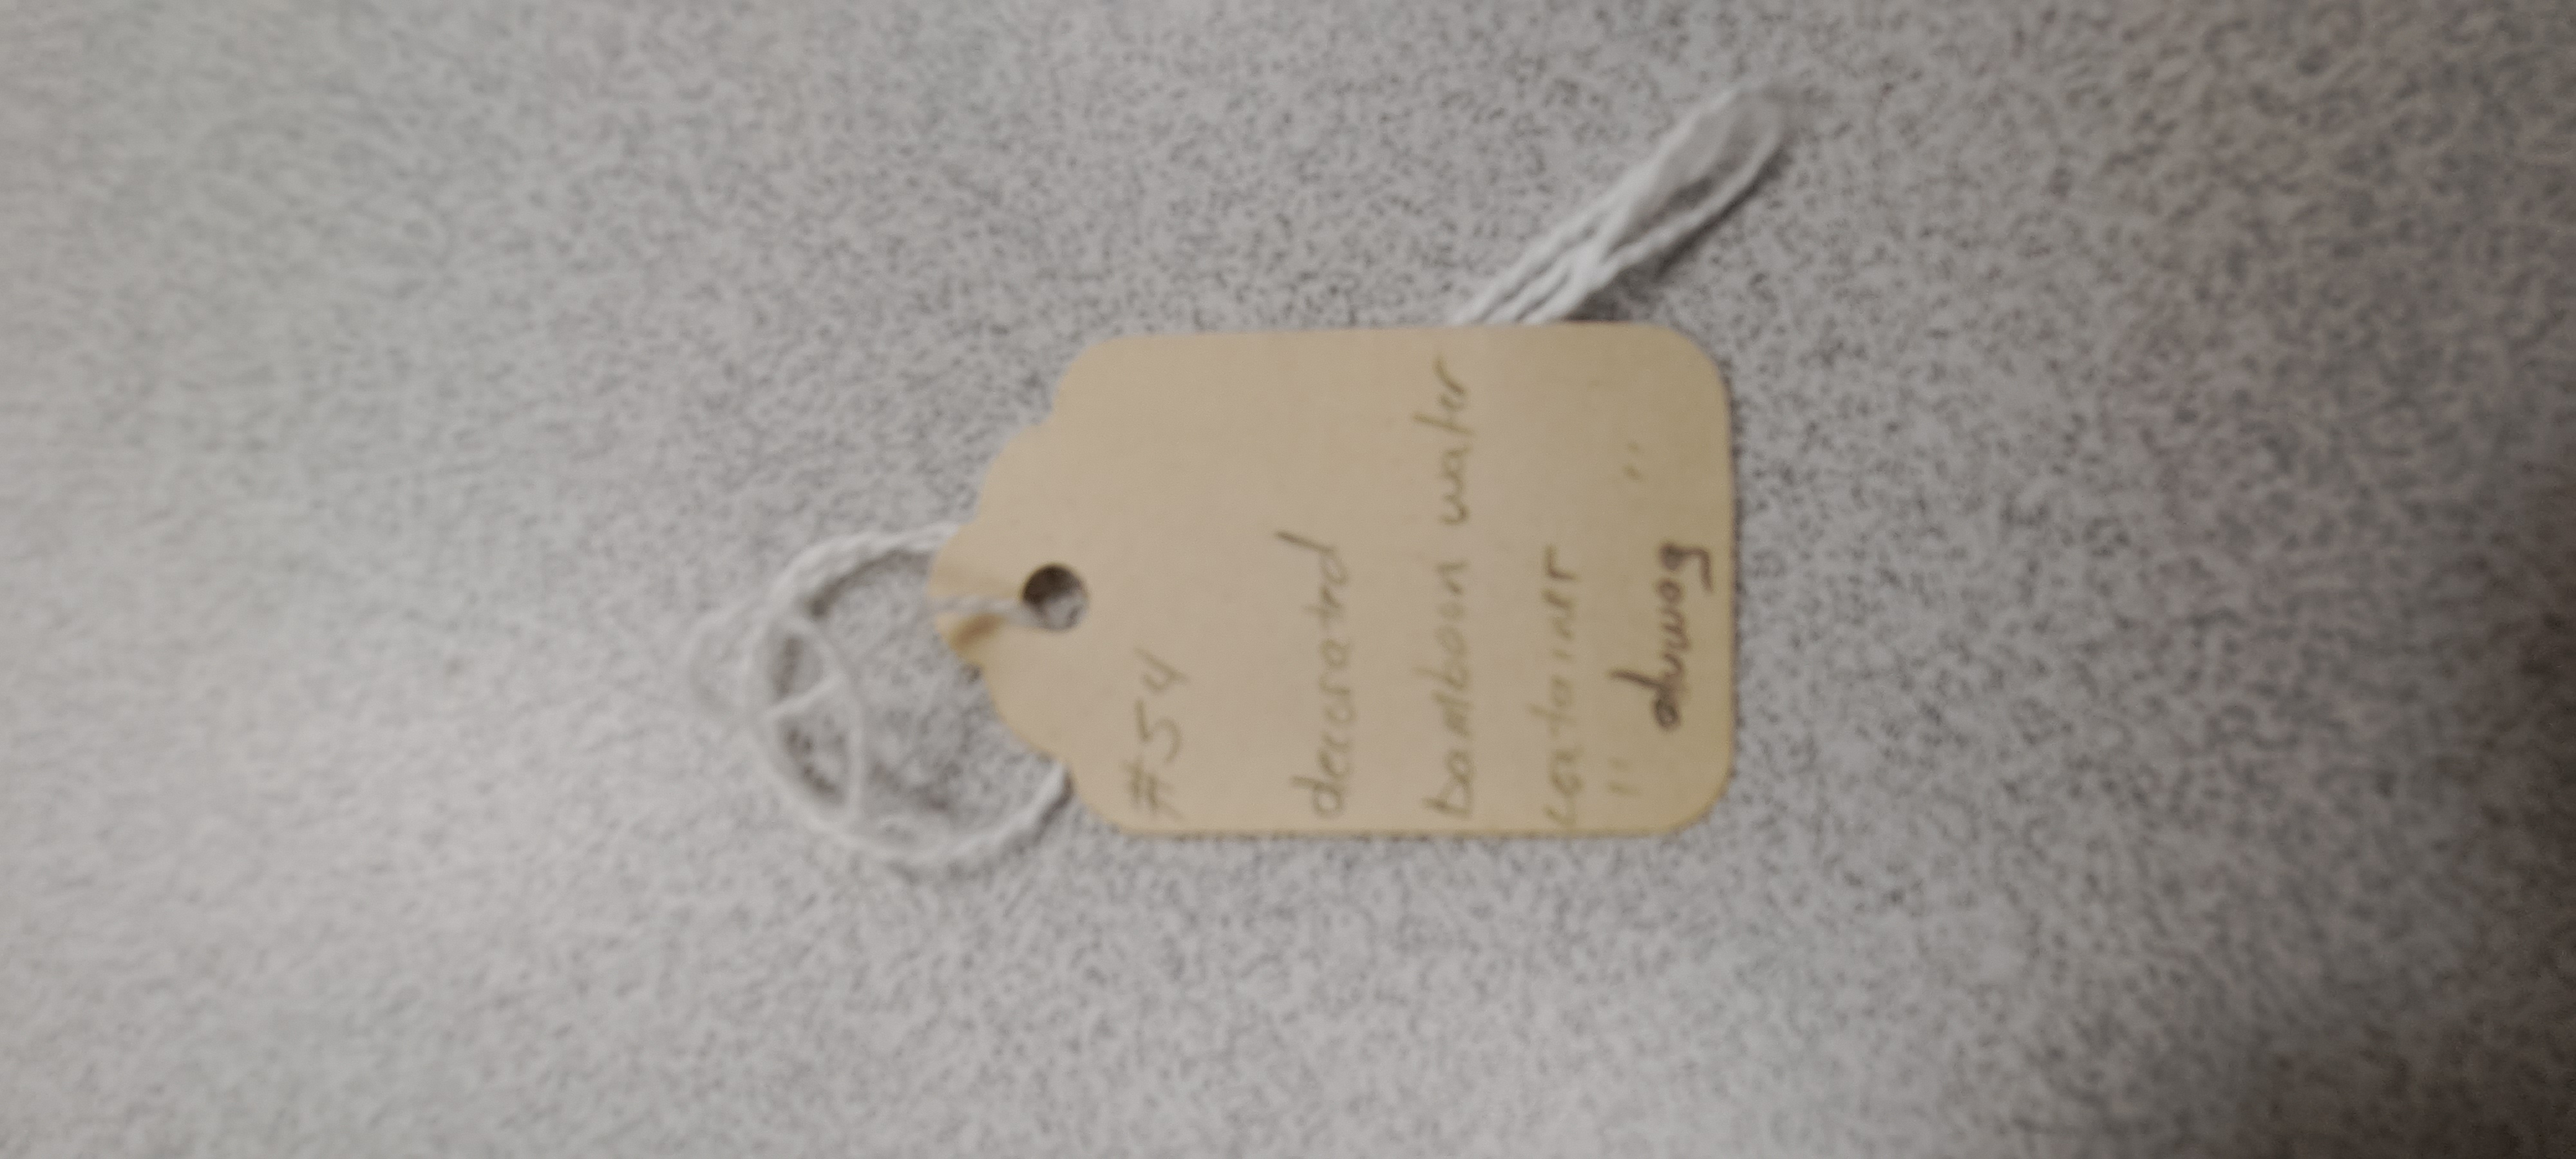 #54
decorated
bamboon water
container
" aluwag "